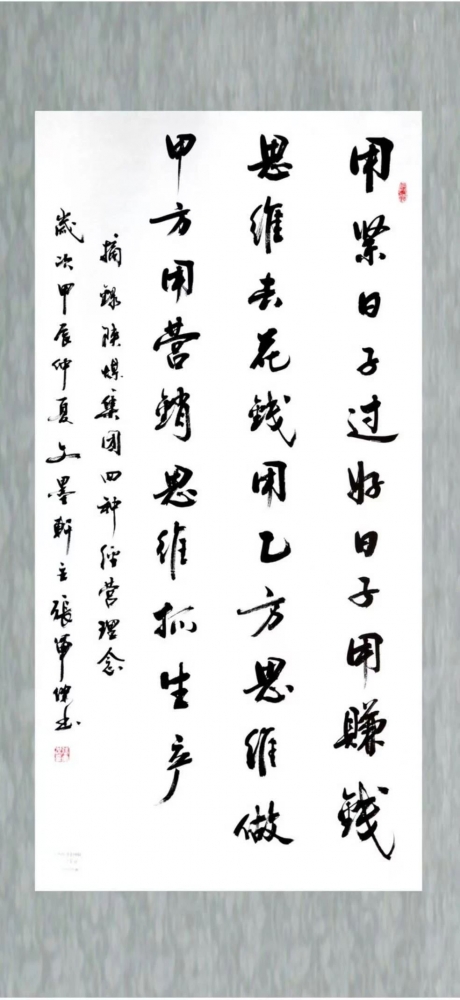 用紧日子过好日子用賺錢
思維去花錢用乙方思維做
甲方用营銷思維抓生产
摘錄陕煤集团四种经营理念
歲次甲辰仲夏文墨軒主張軍傑书